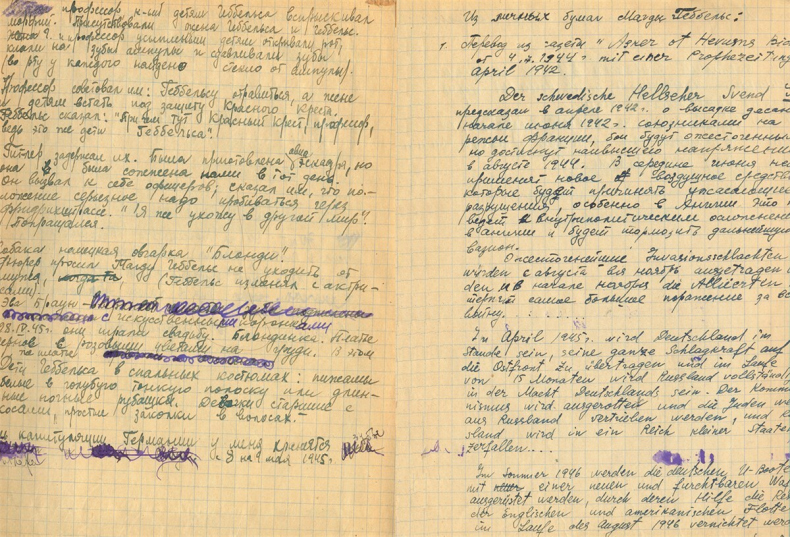 профессор н-ий детям Геббельса вспрыскивал
морфий. Присутствовали жена Геббельса и Геббельс.
профессор усыпленным детям открывали рот,
клали на зубы ампулы и сдавливали зубы
(во рту у каждого найдено стекло от ампулы).
Профессор советовал им: Геббельсу отравиться, а жене
и детям встать под защиту Красного Креста.
Геббельс сказал: "Причем тут Красный Крест, профессор,
ведь это же дети Геббельса".
Гитлер задержал их. Была приготовлена авиоэскадра, но
она была сожжена нами в тот день.
Он вызвал к себе офицеров; сказал им, что по-
ложение серьезное надо пробиваться через
"Я же ухожу в другой мир".
Попрощался.
Собака немецкая овчарка "Блонди".
Фюрер просил Магду Геббельс не уходить от
мужа, (Геббельс изменял с актри-
сами).
Эва Браун
с искусственными
28.IV.45г. они играли свадьбу. Блондинка. Платье
черное с розовыми цветами на груди. В этом
платье
Дети Геббельса в спальных костюмах: пижамы
белые в голубую тонкую полоску или длин-
ные ночные рубашки. Девочки старшие с
косами, простые заколки в волосах.
капитуляции Германии у меня хранятся
с 8 на 9 мая 1945г.
Из личных бумаг Магды Геббельс:
1. Перевод из газеты "
от 1944 г. mit einer Prophezeiung
April 1942.
Der schwedische Hellseher Svend
предсказал в апреле 1942г. о высадке десанта
начале июня 1942г. союзниками на
Франции, бои будут ожесточенные
но достигнут наивысшего напряжения
в августе 1944. В середине июня
применят новое воздушное средство
которые будет причинять ужасающие
разрушения, особенно в Англии. Это
ведет к внутриполитическим осложнениям
в Англии и будет тормозить дальнейшую
вазион.
Ожесточеннейшие Invasionsschlachten
würden с августа bis ноябрь ausgetragen
den и в начале ноября die Alliierten
терпят самое большое поражение за всю
войну.......
In April 1945г. wird Deutschland im
stande sein, seine ganze Schlagkraft auf
die Ostfront zu übertragen und im Laufe
von 15 Monaten wird Russland vollständig
in der Macht Deutschlands sein. Der Kommu-
nismus wird ausgerotten und die Juden
aus Russland vertrieben werden, und
sland wird in ein Reich kleiner Staaten
zerfallen....
Im Sommer 1946 werden die deutschen U-Boote
mit einer neuen und furchtbaren
ausgerüstet werden, durch deren Hilfe die
der Englischen und amerikanischen Flotte
im Laufe des August 1946 vernichtet